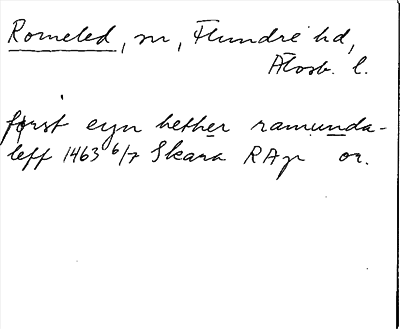 Romeled, sn, Flundre hd,
Älvsb. l.
först eyn hether ramunda-
leff 1463 6/7 Skara RAp or.